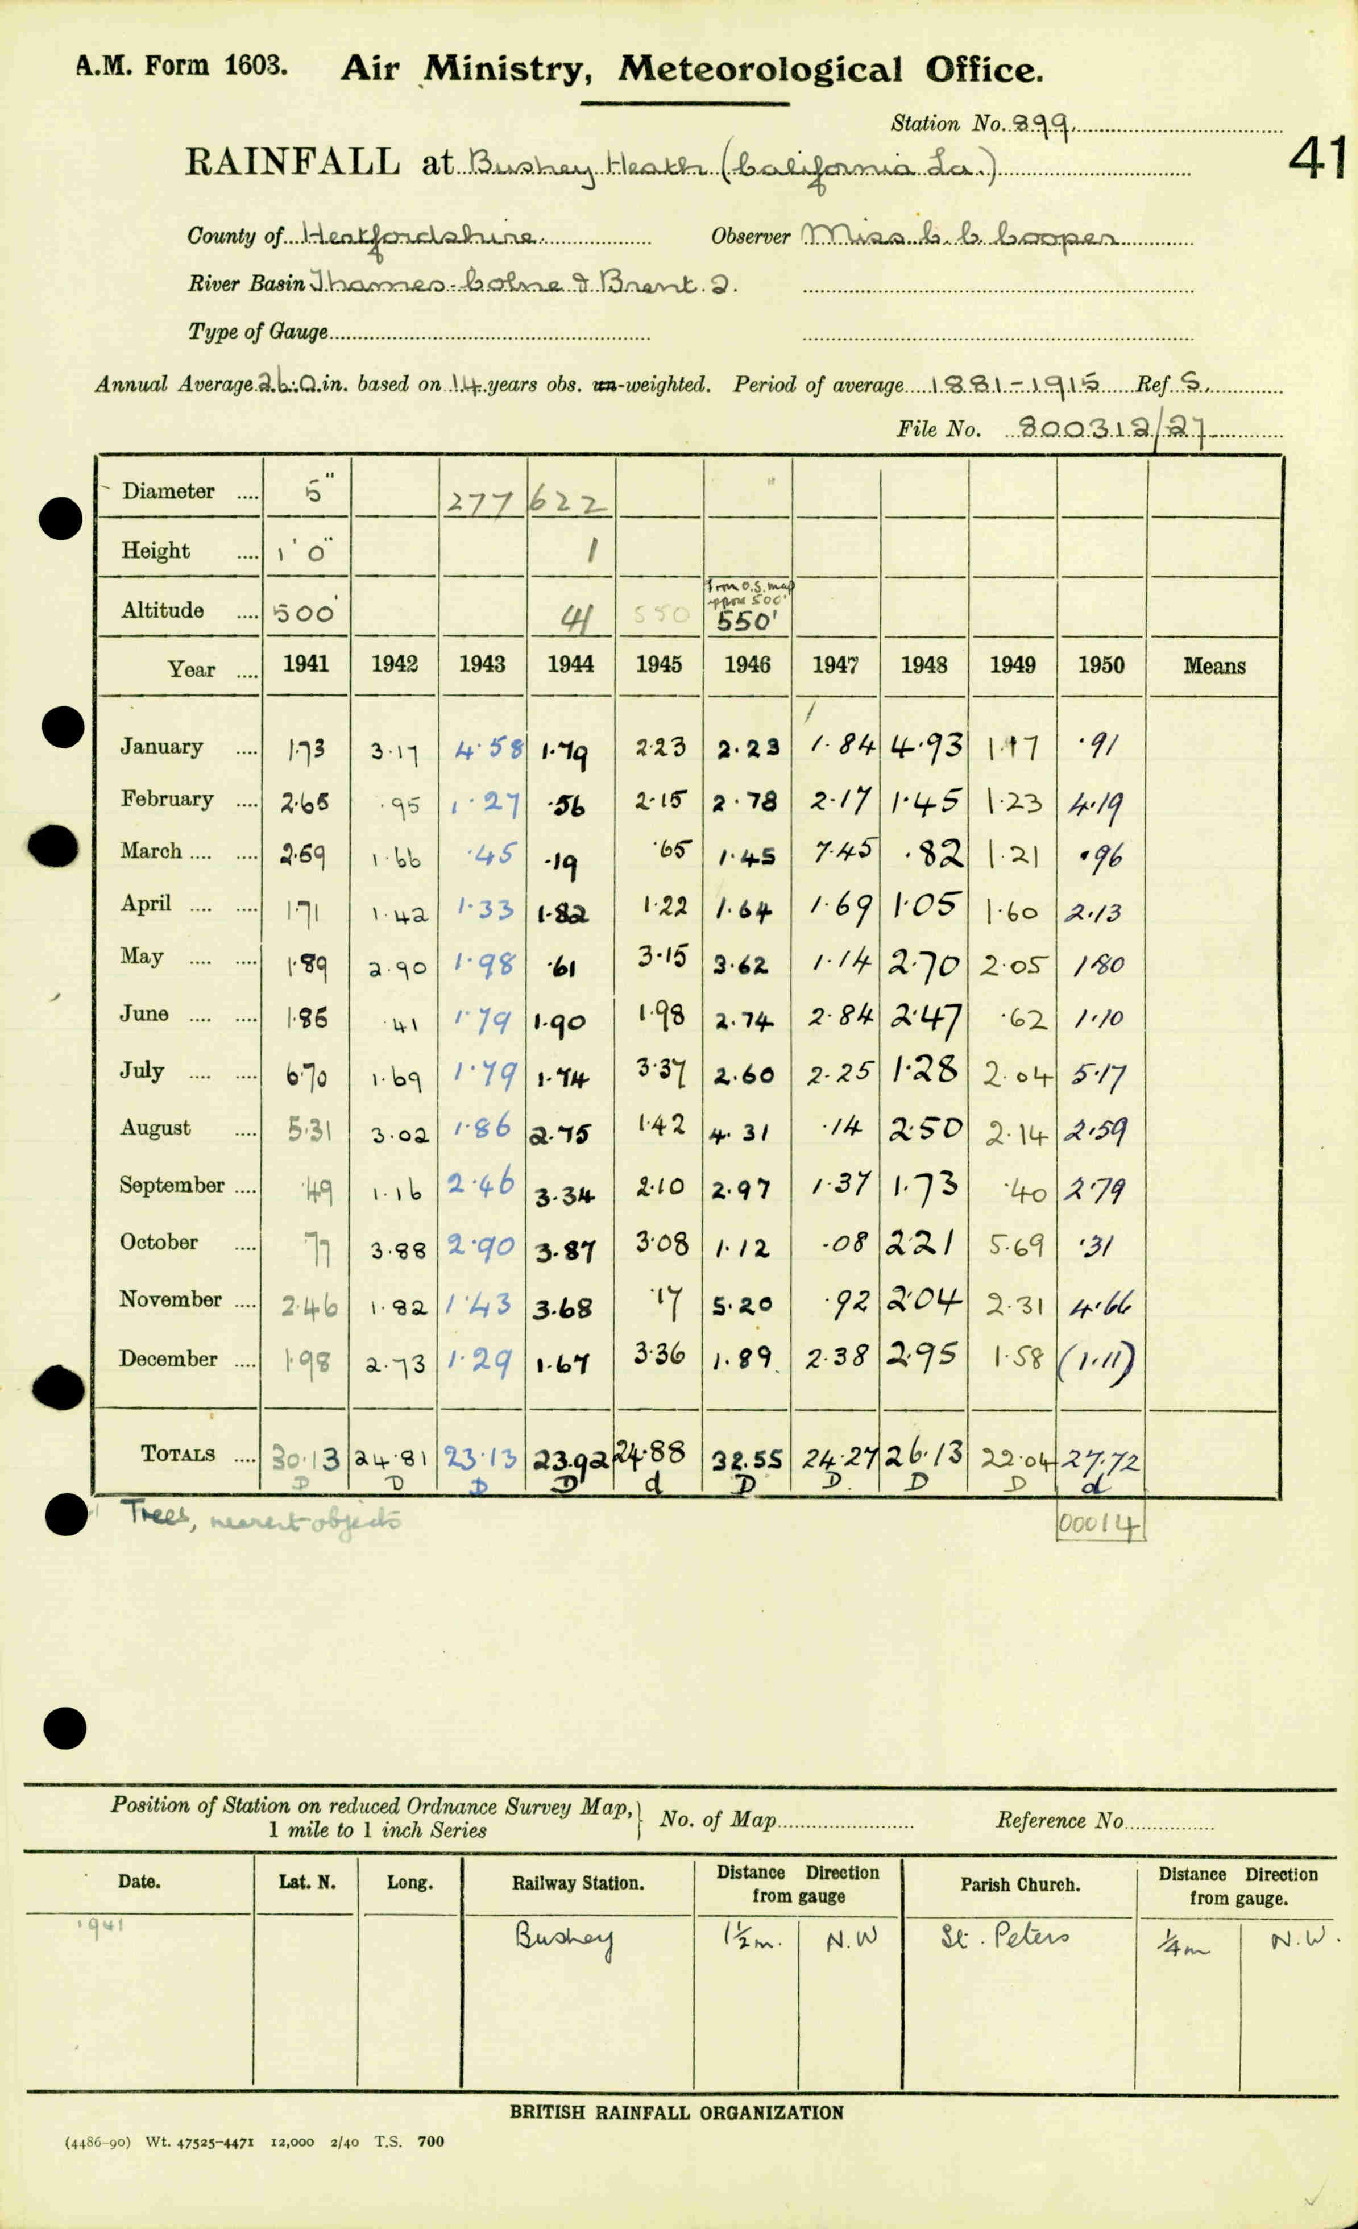 A.M. Form 1603. Air Ministry, Meteorological Office.
Station No. 899.
41
RAINFALL at Bushey Heath (California La.)
County of Hertfordshire. Observer Miss C. C. Cooper
River Basin Thames-Colne & Brent. 2.
Type of Gauge
Annual Average 26.0 in. based on 14 years obs. un-weighted. Period of average 1881-1915 Ref S.
File No. 800312/27
Diameter .... 5" 277 622
Height .... 1' 0" 1
from O.S. map
approx 500'
Altitude .... 500' 41 550 550'
Year .... 1941 1942 1943 1944 1945 1946 1947 1948 1949 1950 Means
January .... 1.73 3.17 4.58 1.79 2.23 2.23 1.84 4.93 1.17 .91
February .... 2.65 .95 1.27 .56 2.15 2.78 2.17 1.45 1.23 4.19
March .... .... 2.59 1.66 .45 .19 .65 1.45 7.45 .82 1.21 .96
April .... .... 1.71 1.42 1.33 1.82 1.22 1.64 1.69 1.05 1.60 2.13
May .... .... 1.89 2.90 1.98 .61 3.15 3.62 1.14 2.70 2.05 1.80
June .... .... 1.85 .41 1.79 1.90 1.98 2.74 2.84 2.47 .62 1.10
July .... .... 6.70 1.69 1.79 1.74 3.37 2.60 2.25 1.28 2.04 5.17
August .... 5.31 3.02 1.86 2.75 1.42 4.31 .14 2.50 2.14 2.59
September .... .49 1.16 2.46 3.34 2.10 2.97 1.37 1.73 .40 2.79
October .... .77 3.88 2.90 3.87 3.08 1.12 .08 2.21 5.69 .31
November .... 2.46 1.82 1.43 3.68 .17 5.20 .92 2.04 2.31 4.66
December .... 1.98 2.73 1.29 1.67 3.36 1.89 2.38 2.95 1.58 (1.11)
TOTALS .... 30.13 24.81 23.13 23.92 24.88 32.55 24.27 26.13 22.04 27.72
D D D D d D D. D D d
Trees, nearest objects 00014
Position of Station on reduced Ordnance Survey Map, } No. of Map Reference No.
1 mile to 1 inch Series
Date. Lat. N. Long. Railway Station. Distance Direction from gauge Parish Church. Distance Direction from gauge.
1941 Bushey 1½m. N.W St. Peters ¼m N.W.
BRITISH RAINFALL ORGANIZATION
(4486-90) Wt. 47525-4471 12,000 2/40 T.S. 700